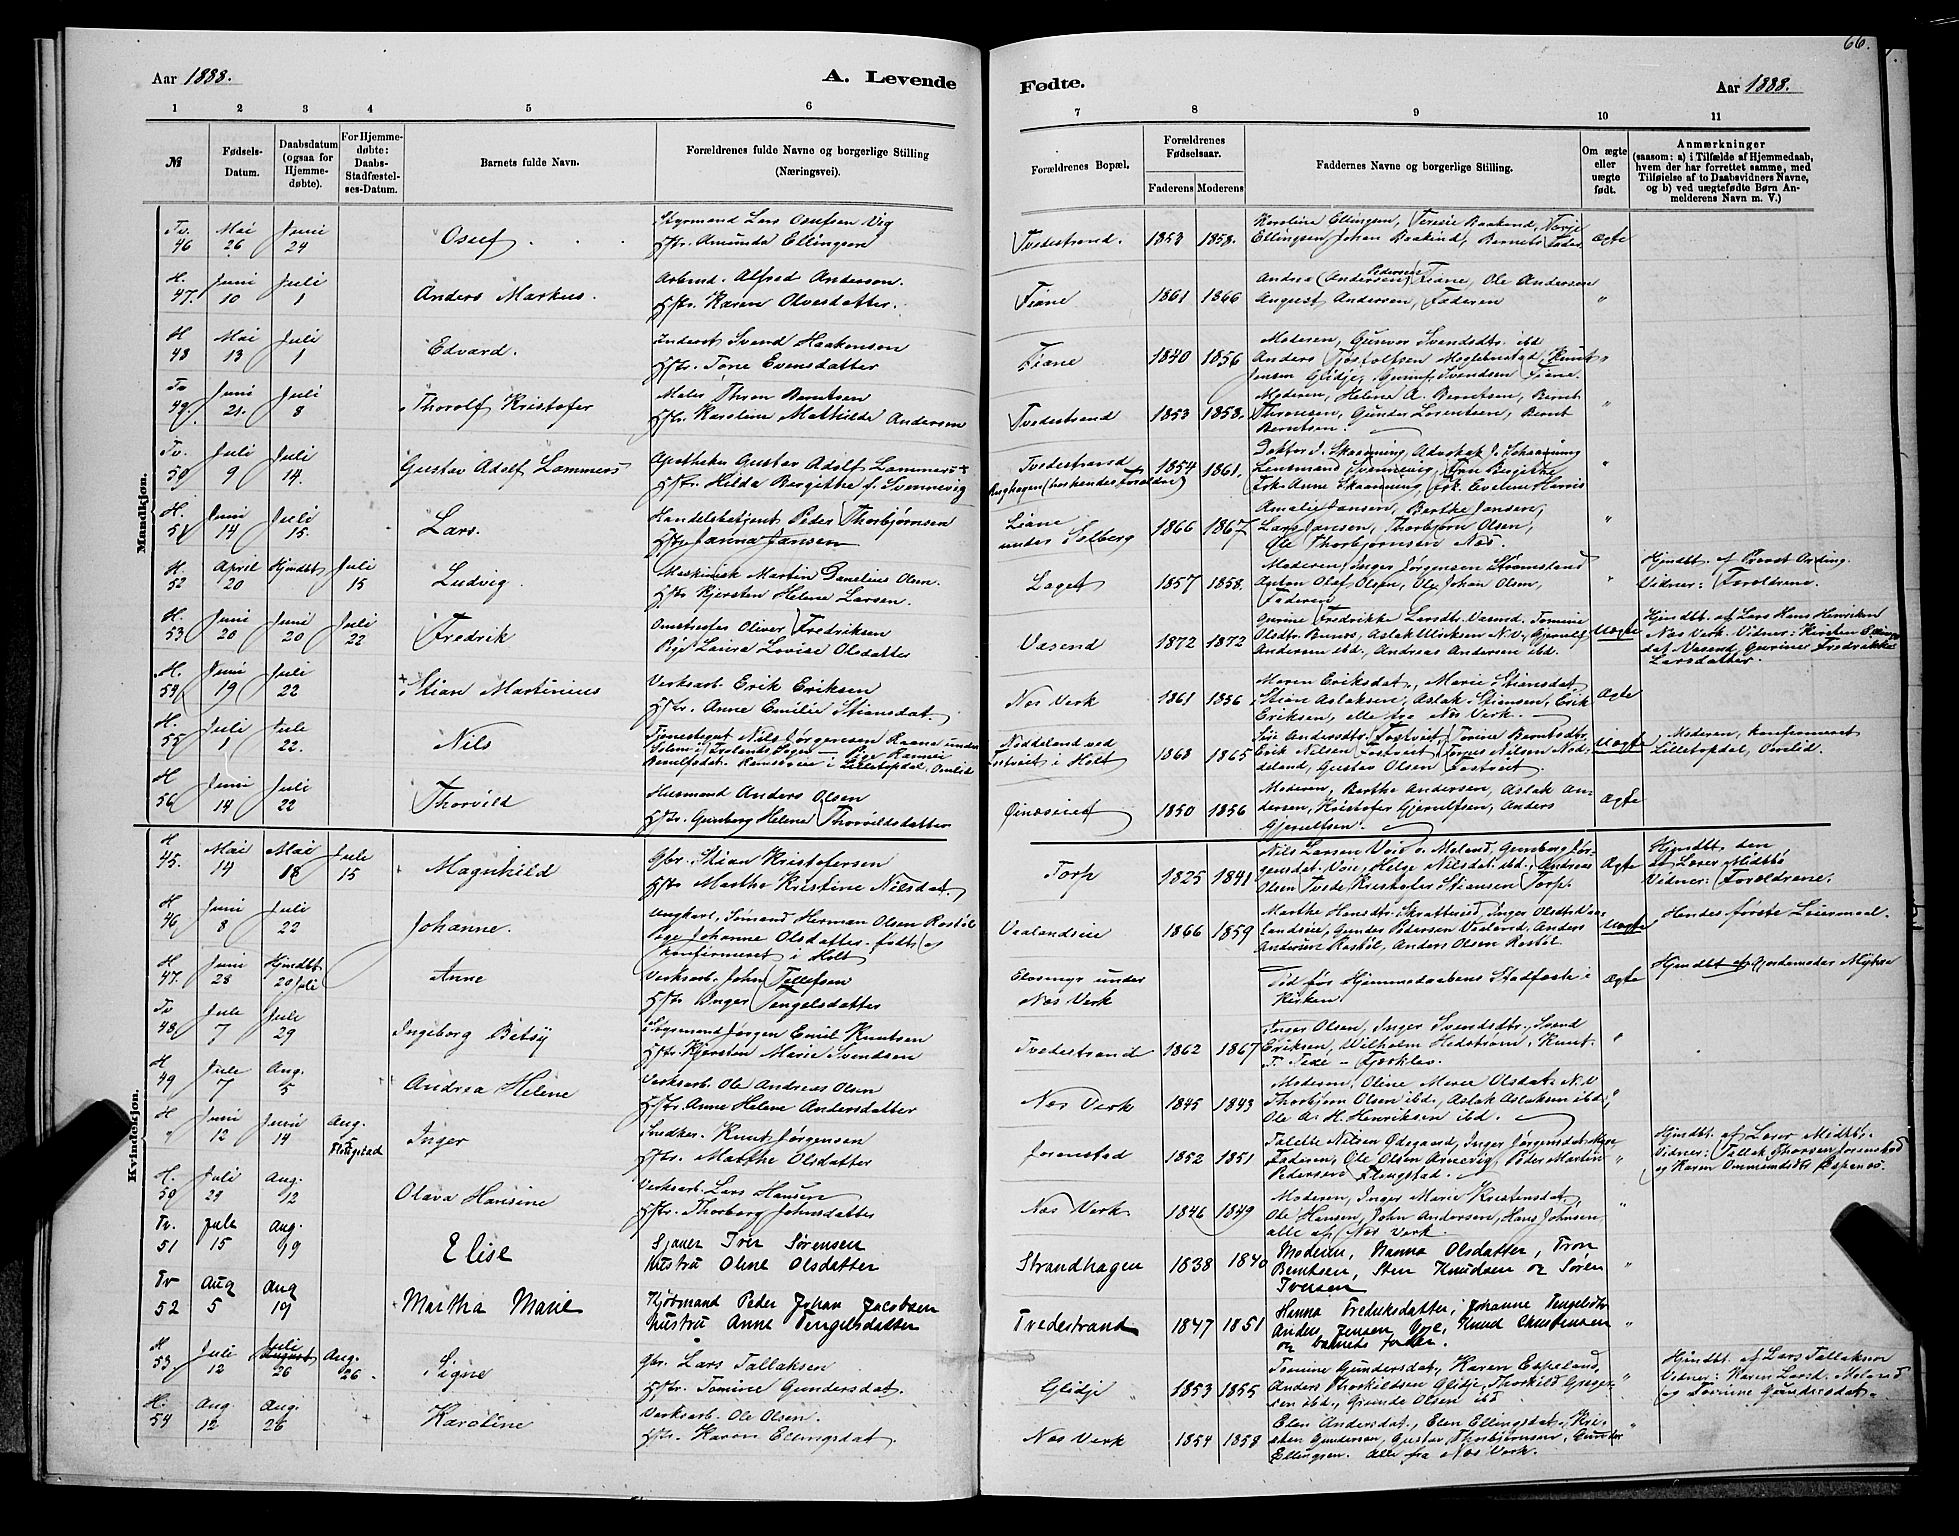 66.
Aar 1888. A. Levende
Fødte. Aar 1888.
1 2 3 4 5 6
7 8 9 10 11
№
Fødsels-
Datum.
Daabsdatum
(ogsaa for
Hjemme-
døbte).
For Hjemme-
døbte:
Daabs-
Stadfæstel-
ses-Datum.
Barnets fulde Navn.
Forældrenes fulde Navne og borgerlige Stilling
(Næringsvei).
Forældrenes Bopæl.
Forældrenes
Fødselsaar.
Faderens Moderens
Faddernes Navne og borgerlige Stilling.
Om ægte
eller
uægte
født.
Anmærkninger
(saasom: a) i Tilfælde af Hjemmedaab,
hvem der har forrettet samme, med
Tilføielse af to Daabsvidners Navne,
og b) ved uægtefødte Børn An-
melderens Navn m. V.)
Mandkjøn.
Tv. 46 Mai 26 Juni 24 Osuf
Styrmand Lars Osufsen Vig
Hstr. Amunda Ellingsen
Tvedestrand. 1853 1858.
Karoline Ellingsen, Terese Baakind, Terje
Ellingsen, Johan Baakind, Barnets Fader
Ægte
H. 47. Juni 10 Juli 1 Anders Markus.
Arbmd. Alfred Anderson.
Hstr. Karen Olvesdatter.
Fiane 1861 1866
Andrea (Andersen) Pedersen Fiane, Ole Andersen
August Andersen, Faderen "
H 48 Mai 13 Juli 1 Edvard.
Inderst Svend Haakonsen
Hstr. Tone Evensdatter
Fiane 1840 1856
Moderen, Gunvor Svendsdtr. ibd
Anders Tosfoltsen Moglebustad, Knut
Jensen Glidje, Gunuf Svendsen Fiane. "
Tv 49. Juni 21. Juli 8 Thorolf Kristofer
Maler Thron Berntsen
Hstr. Karoline Mathilde Andersen
Tvedestrand 1853 1858.
Moderen, Helene A. Berntsen, Bernt
Thronesen, Gunder Lorentsen, Bernt
Berntsen. "
Tv. 50 Juli 9 Juli 14. Gustav Adolf Lammers
Apotheker Gustav Adolf Lammers
Hstr. Hilda Bergithe f. Svennevig
Tvedestrand 1854 1861.
Doktor J. Skaanning, Advokat J. Schanning
Lensmand Svennevig, Fru Bergithe
Frk. Anne Skaanning, Frk. Eveline Harris "
H. 51 Juni 14 Juli 15. Lars.
Handelsbetjent Peder Thorbjørnsen
Hstr Janna Jansen
Liane
under Solberg 1866 1867
Amalie Jansen, Berthe Jansen,
Lars Jansen, Thorbjørn Olsen,
Ole Thorbjørnsen Næs. "
H. 52 April 20 Hjmdbt Juli 15 Ludvig.
Maskinist Martin Danelius Olsen.
Hstr Kjersten Helene Larsen.
Laget 1857 1858.
Moderen, Inger Jørgensen Strømsland
Anton Olaf Olsen, Ole Johan Olsen,
Faderen "
Hjmdbt. af Provst Ording.
Vidner: Forældrene.
H. 53 Juni 20 Juni 20 Juli 22 Fredrik
Oliver Fredriksen
Pige Laura Lovise Olsdatter
Vasend 1872 1872
Gurine Fredrikke Larsdtr. Vasend, Tomine
Olsdtr. Bunes, Aslak Ulriksen N.V., Gjerulf
Andersen ibd., Andreas Andersen ibd.
Uægte
Hjmdbt. af Lars Hans Henriksen
Næs Verk. Vidner: Kirsten Ellings
dat Vasend, Gurine Fredrikke
Larsdatter.
H. 54 Juni 19 Juli 22 Stian Martinius
Verksarb. Erik Eriksen
Hstr. Anne Emilie Stiansdat.
Næs Verk 1861 1856
Maren Eriksdat., Marie Stiansdat
Stian Aslaksen, Aslak Stiansen, Erik
Eriksen, alle fra Næs Verk.
Ægte
H 55 Juli 1 Juli 22. Nils
Tjenestegut Nils Jørgensen Raane under
Solem i Froland Sogn – Pige Karnei
Berulfsdat. Ramsveien i Lilletopdal, Omlid
Noddeland ved
Fostveit i Holt 1868 1865
Erik Nilsen Fostveit, Tomas Nilsen Nod-
deland, Gustav Olsen Fostveit.
Uægte
Moderen, konfirmeret
Lilletopdal, Omlid.
H 56 Juni 14 Juli 22 Thorvild
Husmand Anders Olsen
Hstr. Gunborg Helene Thorvildsdatter
Øinæseiet 1850 1856
Moderen, Berthe Andersen, Aslak An-
dersen, Kristofer Gjerulfsen, Anders
Gjerulfsen.
Ægte
Kvindekjøn.
H 45. Mai 14 Mai 18 Juli 15 Magnhild
Gbr. Stian Kristofersen
Hstr Marthe Kristine Nilsdat.
Torp 1825 1841
Nils Larsen Voie v. Moland, Gunborg Jør-
gensdat. Voie, Helge Nilsdat. ibd., Andreas
Olsen Tvede, Kristofer Stiansen Torp.
Ægte
Hjmdbt. den
af Lærer Midtbø
Vidner: Forældrene.
H 46 Juni 8 Juli 22 Johanne.
Ungkarl, Sømand Herman Olsen Rostøl
Pige Johanne Olsdatter født og
konfirmeret i Holt
Vaalandseie 1866 1859
Marthe Hansdtr. Skratteried, Inger Olsdtr Vaa-
landseie, Gunder Pedersen Vaaland, Anders
Andersen Rostøl, Anders Olsen Rostøl
Uægte
Hendes første Leiermaal.
H 47. Juni 28 Hjmdbt 20 Juli Anne
Verksarb. John Tellefsen
Hstr Anger Tengelsdatter
Storemyr under
Næs Verk
Død før Hjemmedaabens Stadfæste i
Kirken.
Ægte
Hjmdbt af Gjordemoder Myhre
Tv 48, Juli 7 Juli 29 Ingeborg Betsy
Styrmand Jørgen Emil Knutsen
Hstr. Kjersten Marie Svendsen
Tvedestrand 1862 1867
Inger Olsen, Inger Svendsdtr., Svend
Eriksen, Wilhelm Hedstrøm, Knut "
H 49 Juli 7 Aug. 5 Andrea Helene
Verksarb. Ole Andreas Olsen
Hstr. Anne Helene Andersdatter
Næs Verk 1845 1843
Moderen, Oline Marie Olsdat. N.V
Thorbjørn Olsen ibd., Aslak Aslaksen ibd.
Ole A. H. Henriksen ibd. "
H " Juni 12 Juni 14 Aug. 5 Flougstad Inger
Snedker. Knut Jørgensen
Hstr. Marthe Olsdatter
Jorenstad 1852 1851
Talette Nilsen Ødegaard, Inger Jørgensdat.
Faderen, Ole Olsen Arnevig, Peder Martin
Pedersen Flougstad. "
Hjmdbt. af Lærer Midtbø.
Vidner: Tallak Thorsen Jorenstad
og Karen Ommundsdtr Espenes.
H. 50 Juli 29 Aug. 12 Olava Hansine
Verksarb. Lars Hansen
Hstr. Thorborg Johnsdatter
Næs Verk. 1846 1849
Moderen, Inger Marie Kristensdat.,
Ole Hansen, John Andersen, Hans Johnsen,
alle af Næs Verk. "
Tv. 51 Jule 15 Aug. 19 Elise
Sjauer Iver Sørensen
Hustru Oline Olsdatter
Strandhagen 1838 1840
Moderen, Nanna Olsdatter, Tron
Berntsen, Sten Knudsen og Søren
Iversen "
Tv 52 Aug 5 Aug 19 Martha Marie
Kjøbmand Peder Johan Jacobsen
Hustru Anne Tengelsdatter
Tvedestrand 1847 1851
Hanna Fredriksdatter, Johanne Tengelsdtr
Anders Jensen Voie, Knud Christensen
og barnets fader. "
H 53 Juli 12 Juli 26 Aug. 26 Signe
Gbr. Lars Tallaksen
Hstr. Tomine Gundersdat.
Glidje 1853 1855
Tomine Gundersdat, Karen Espeland,
Anders Thorkildsen Glidje, Thorkild Gunder-
sen ibd., Gunde Olsen ibd "
Hjmdbt. af Lars Tallaksen
Vidner: Karen Moland
og Tomine Gundersdat.
H. 54 Aug. 12 Aug. 26 Karoline
Verksarb. Ole Olsen.
Hstr. Karen Ellingsdat.
Næs Verk 1854 1858
Elen Andersdat., Elen Ellingsdat., Kri-
sten Gundersen, Gustav Thorbjørnsen, Gunder
Ellingsen. Alle fra Næs Verk. "